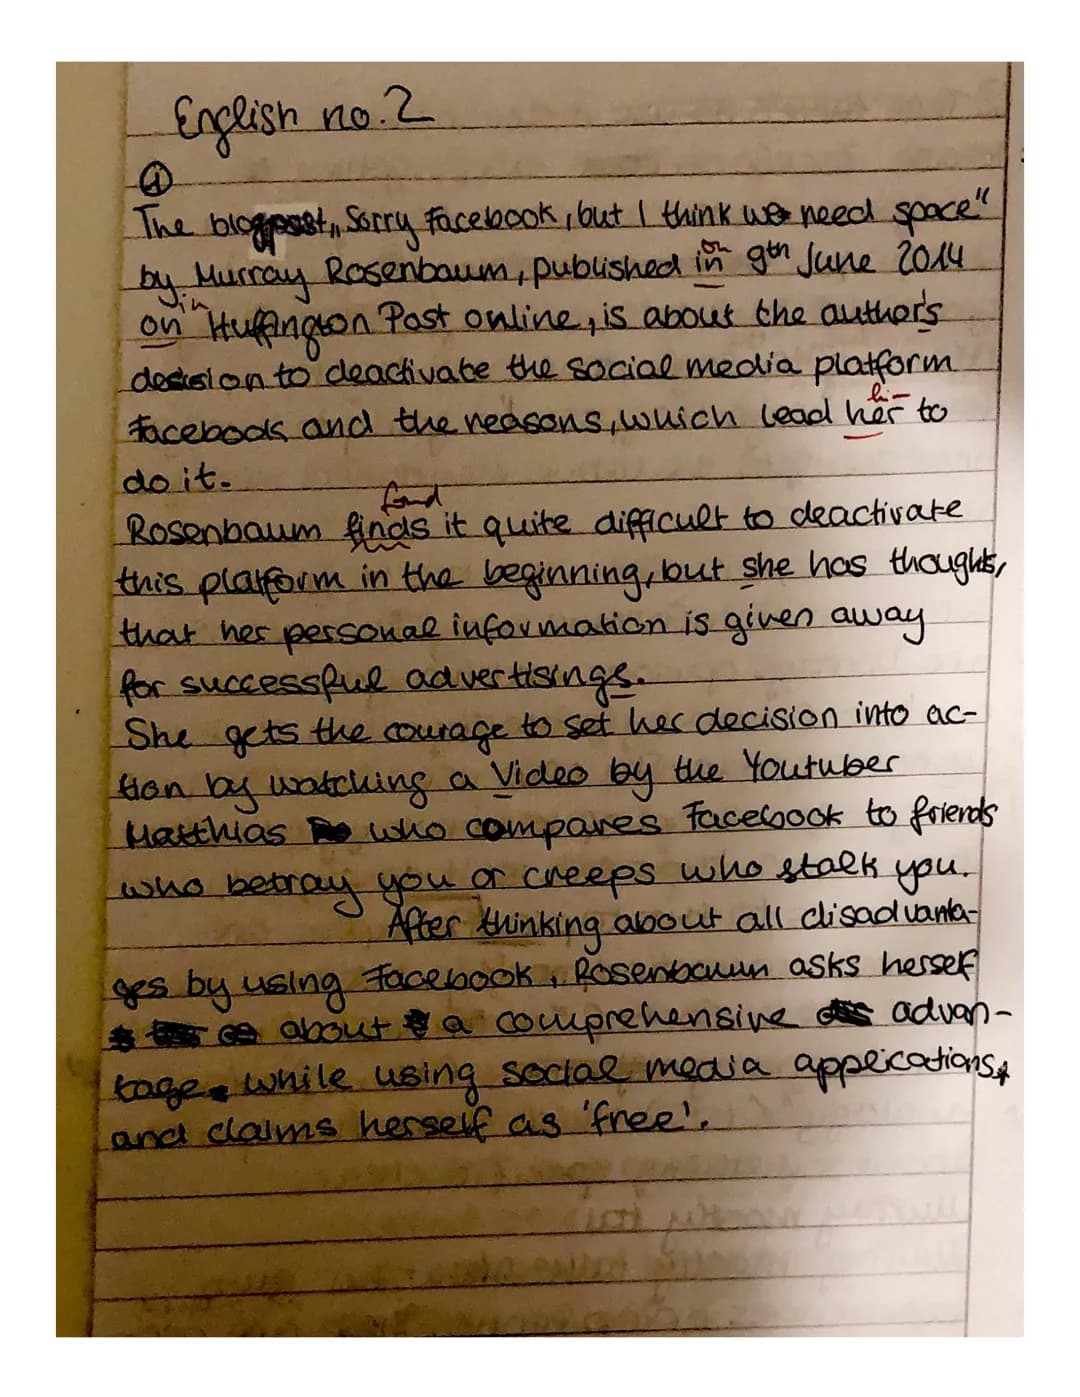 English no. 2
①
The blogpost „Sorry Facebook, but I think we need space"
on
by Murray Rosenbaum, published in 9th June 2014
in
on Huffington Post online, is about the author's
decision to deactivate the social media platform
Facebook and the reasons, which lead her to
do it.
found
Rosenbaum finds it quite difficult to deactivate
this platform in the beginning, but she has thoughts,
that her personal information is given away
for successful advertisings.
She gets the courage to set her decision into ac-
tion by watching a Video by the Youtuber
Matthias who compares Facebook to friends
who betray you or creeps who stalk you.
After thinking about all disadvanta-
ges by using Facebook, Rosenbaum asks herself
about a comprehensive advan-
tage while using social media applications,
and claims herself as 'free'.